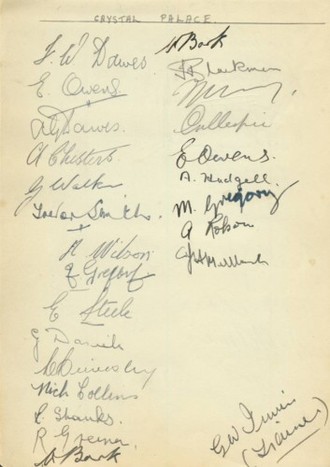 CRYSTAL PALACE.
F. W. Dawes
E. Owens
A G Dawes.
A Chesters
J. Walker
Trevor Smith.
A. Wilson
F. Gregory
E Steele
G Daniels
Nick Collins
C. Shanks.
R Greener
A Bark
A Bark
J R Blackman
Gillespie
E Owens.
A. Hudgell.
M. Gregory
A Robson
G W Irwin
(Trainer)